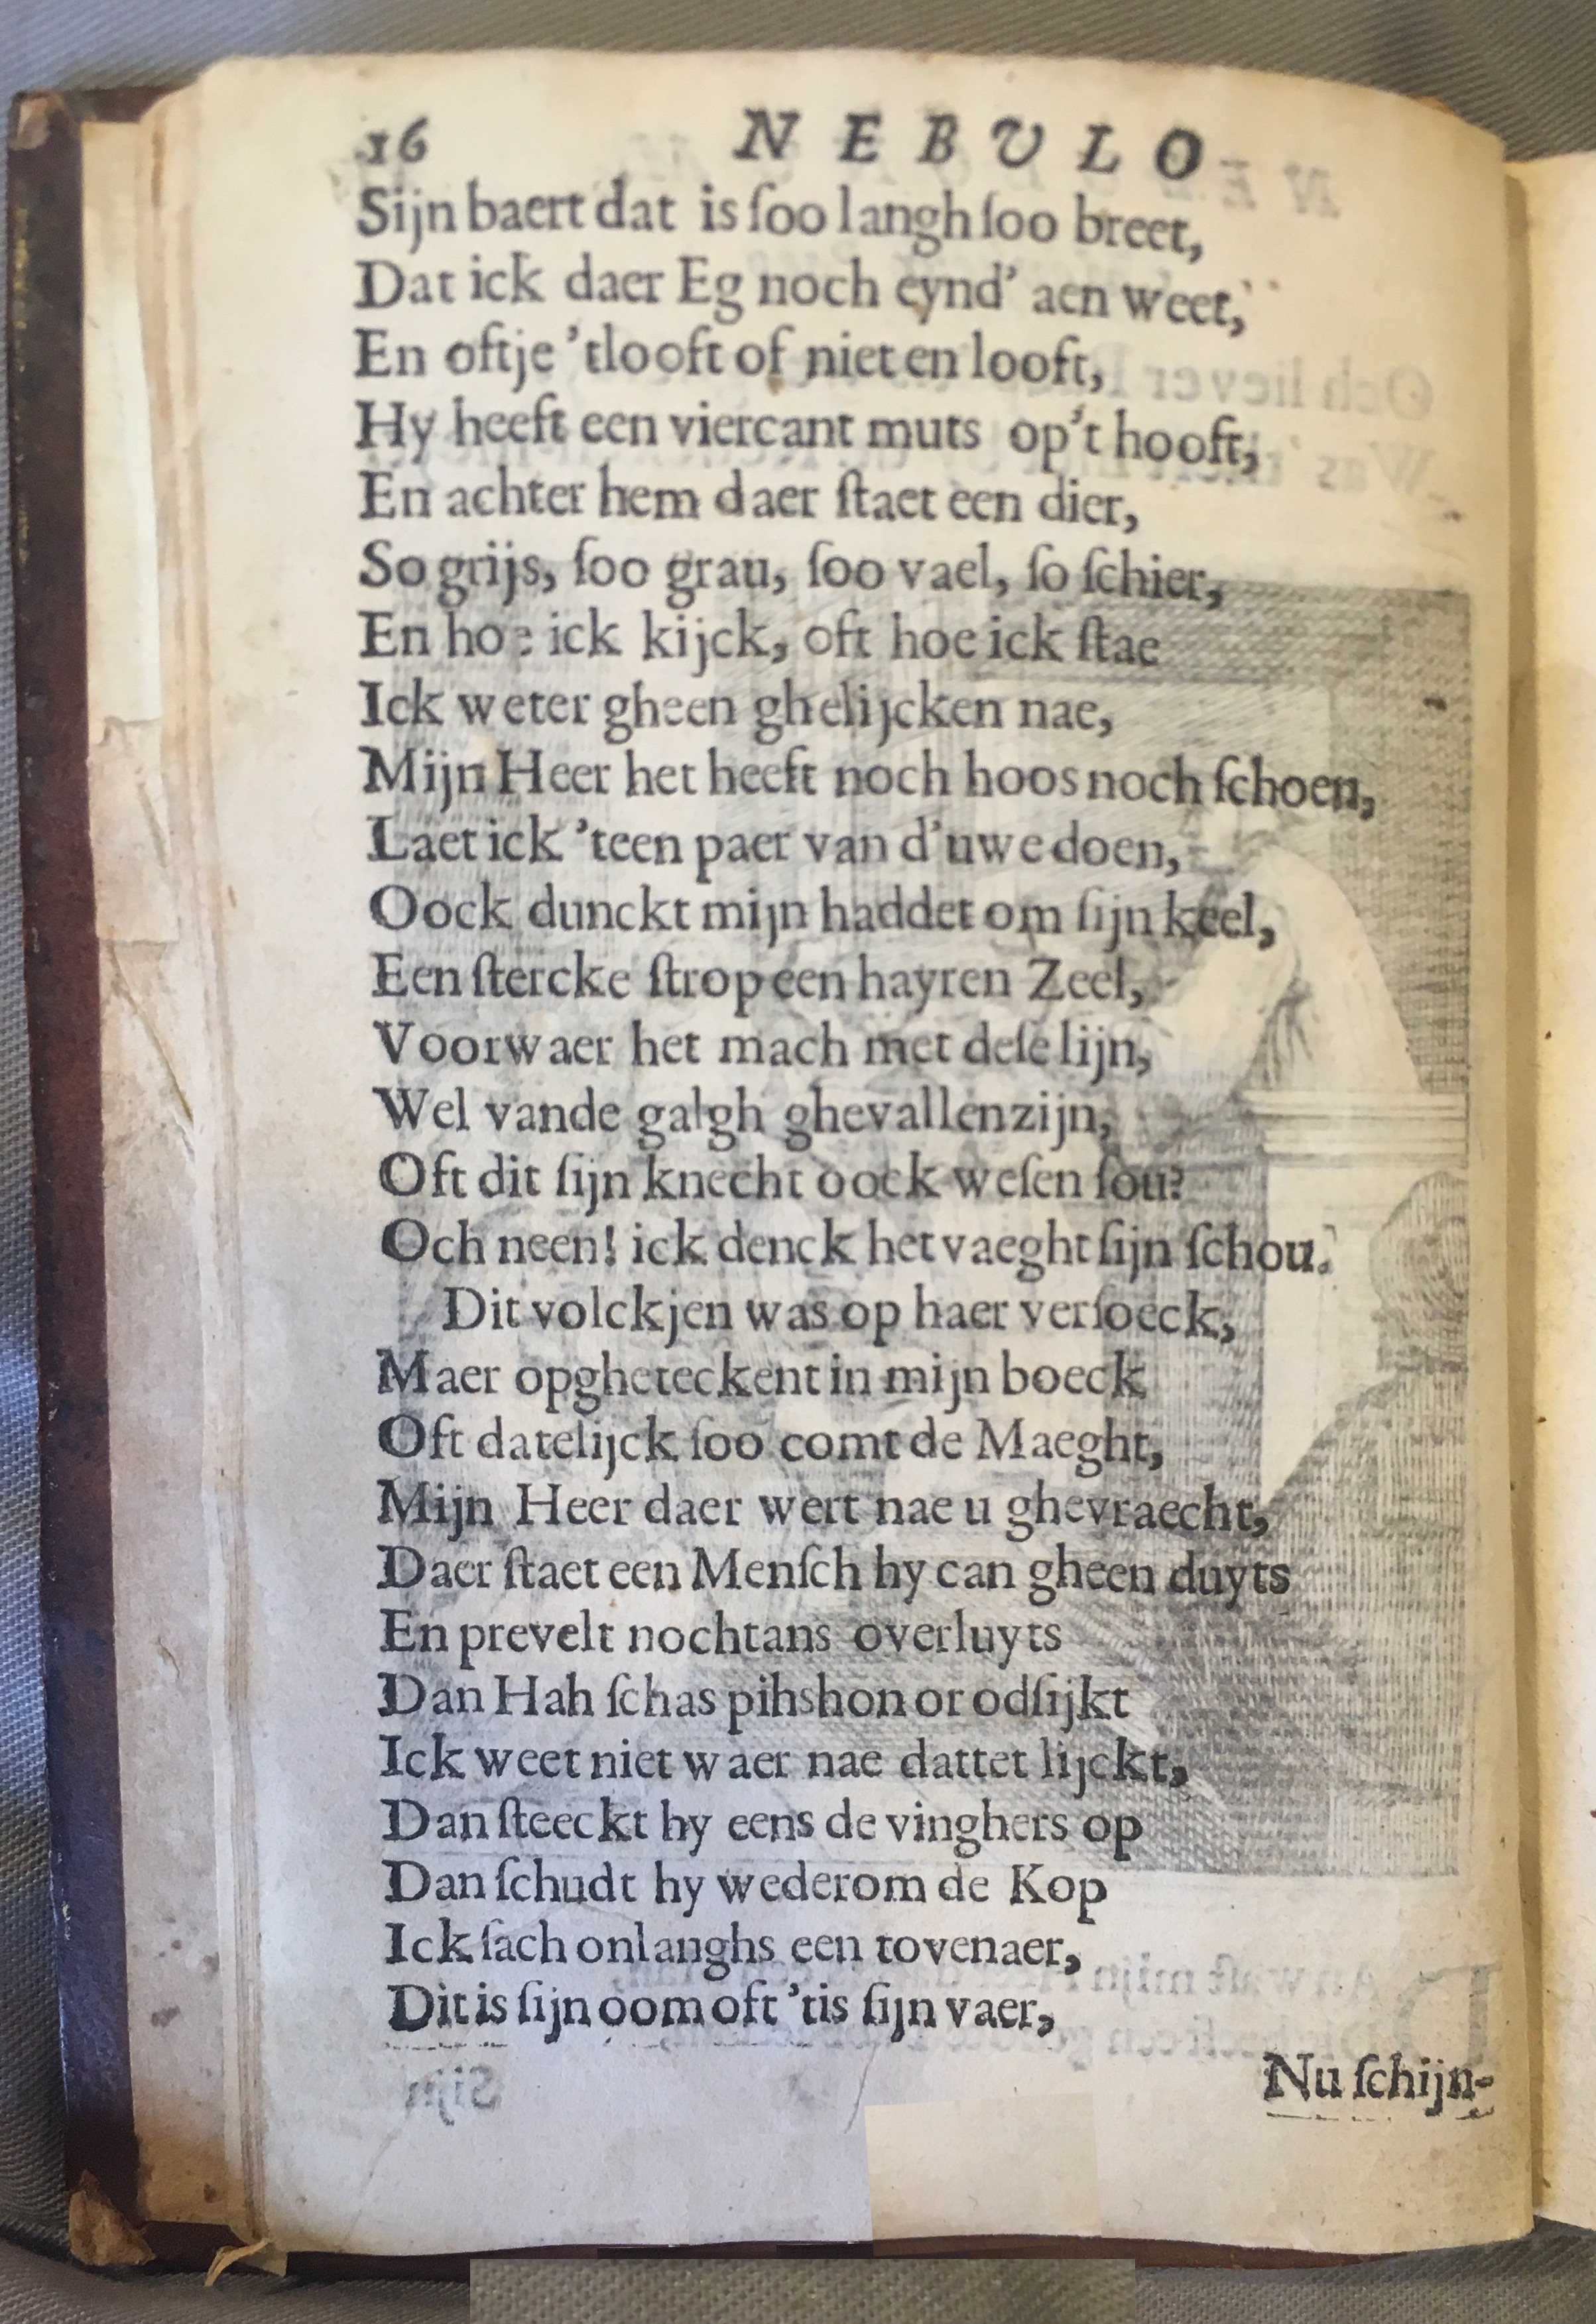 16 NEBULO
Sijn baert dat is ſoo langh ſoo breet,
Dat ick daer Eg noch eynd' aen weet,
En oftje 'tlooft of niet en looft,
Hy heeft een viercant muts op't hooft,
En achter hem daer ſtaet een dier,
So grijs, ſoo grau, ſoo vael, ſo ſchier,
En hoe ick kijck, oft hoe ick ſtae
Ick weter gheen ghelijcken nae,
Mijn Heer het heeft noch hoos noch ſchoen,
Laet ick 'teen paer van d'uwe doen,
Oock dunckt mijn haddet om ſijn keel,
Een ſtercke ſtrop een hayren Zeel,
Voorwaer het mach met deſe lijn,
Wel vande galgh ghevallen zijn,
Oft dit ſijn knecht oock weſen ſou?
Och neen! ick denck het vaeght ſijn ſchou.
Dit volckjen was op haer verſoeck,
Maer opgheteckent in mijn boeck
Oft datelijck ſoo comt de Maeght,
Mijn Heer daer wert nae u ghevraecht,
Daer ſtaet een Menſch hy can gheen duyts
En prevelt nochtans overluyts
Dan Hah ſchas pihshon or odſijkt
Ick weet niet waer nae dattet lijckt,
Dan ſteeckt hy eens de vinghers op
Dan ſchudt hy wederom de Kop
Ick ſach onlanghs een tovenaer,
Dit is ſijn oom oft 'tis ſijn vaer,
Nu ſchijn-